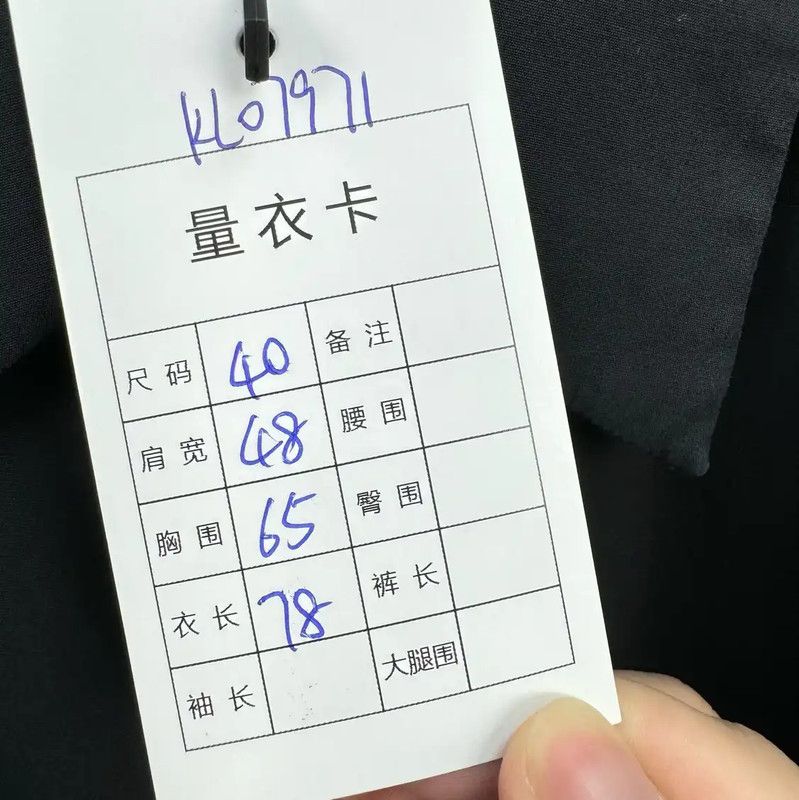 KL07971
量衣卡
尺码 40 备注
肩宽 48 腰围
胸围 65 臀围
衣长 78 裤长
袖长 大腿围